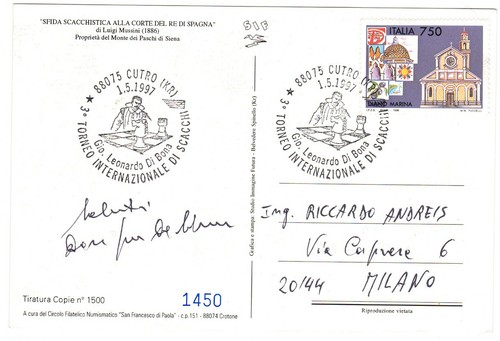 "SFIDA SCACCHISTICA ALLA CORTE DEL RE DI SPAGNA"
di Luigi Mussini (1886)
Proprietà del Monte dei Paschi di Siena
SIF
ITALIA 750
DIANO MARINA
88075 CUTRO (KR)
1.5.1997
Gio. Leonardo Di Bona
★ 3° TORNEO INTERNAZIONALE DI SCACCHI
88075 CUTRO
1.5.1997
Gio. Leonardo Di Bona
★ 3° TORNEO INTERNAZIONALE DI SCACCHI
Saluti
Grafica e stampa: Studio Immagine Futura - Belvedere Spinello (Kr)
Ing. RICCARDO ANDREIS
Via Caprera 6
20144 MILANO
Tiratura Copie n° 1500
1450
A cura del Circolo Filatelico Numismatico "San Francesco di Paola" - c.p. 151 - 88074 Crotone
Riproduzione vietata